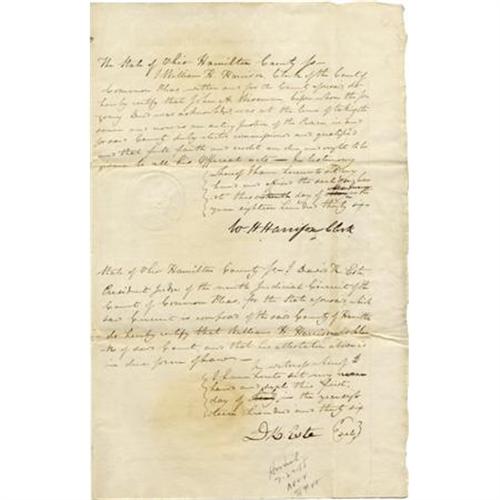 The State of Ohio Hamilton County Ss
I William H. Harrison Clerk of the Court of
Common Pleas within and for the County aforesaid do
hereby certify that John A. before whom the fore
going Deed was acknowledged was at the time of
same and now is an acting Justice of the Peace in and
for said County duly elected commissioned and qualified
and that full faith and credit are due and ought to be
given to all his official acts — In testimony
whereof I have hereunto set my
hand and affixed the seal
at this day of
year eighteen hundred thirty six
W H Harrison Clerk
State of Ohio Hamilton County Ss. I David K. Este
President Judge of the ninth Judicial Circuit of the
Court of Common Pleas, for the State aforesaid which
said Circuit is composed of the said County of Hamilton
do hereby certify that William H. Harrison is Cle
rk of said Court and that his attestation above is
in due form of Law —
In witness whereof
I have hereunto set my
hand and seal this first
day of in the year eigh
teen hundred and thirty six
D K Este seal